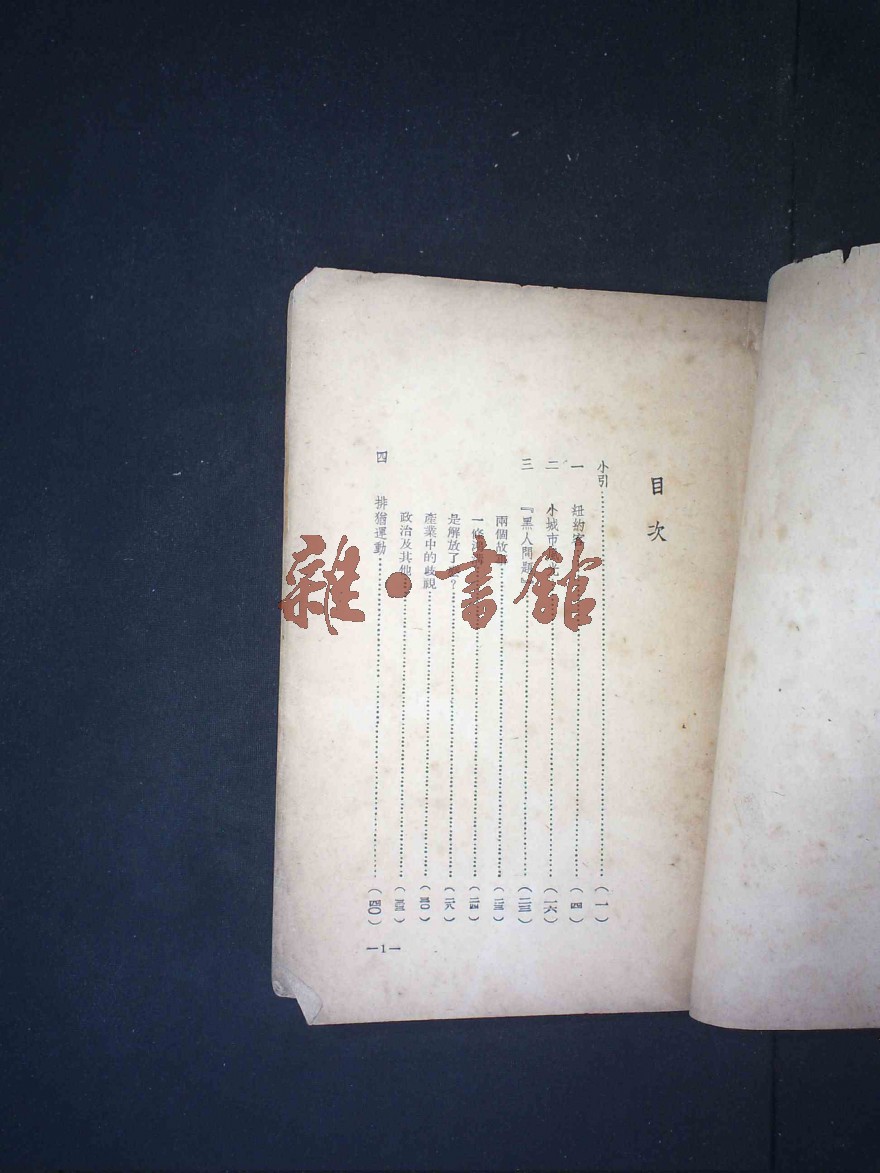 目次
小引……(一)
一 紐約……(四)
二 小城市……(一六)
三 『黑人問題』……(二三)
兩個故……(二三)
一條……(二四)
是解放了?……(二八)
產業中的歧視……(三〇)
政治及其他……(三三)
四 排猶運動……(四〇)
—1—
雜·書館